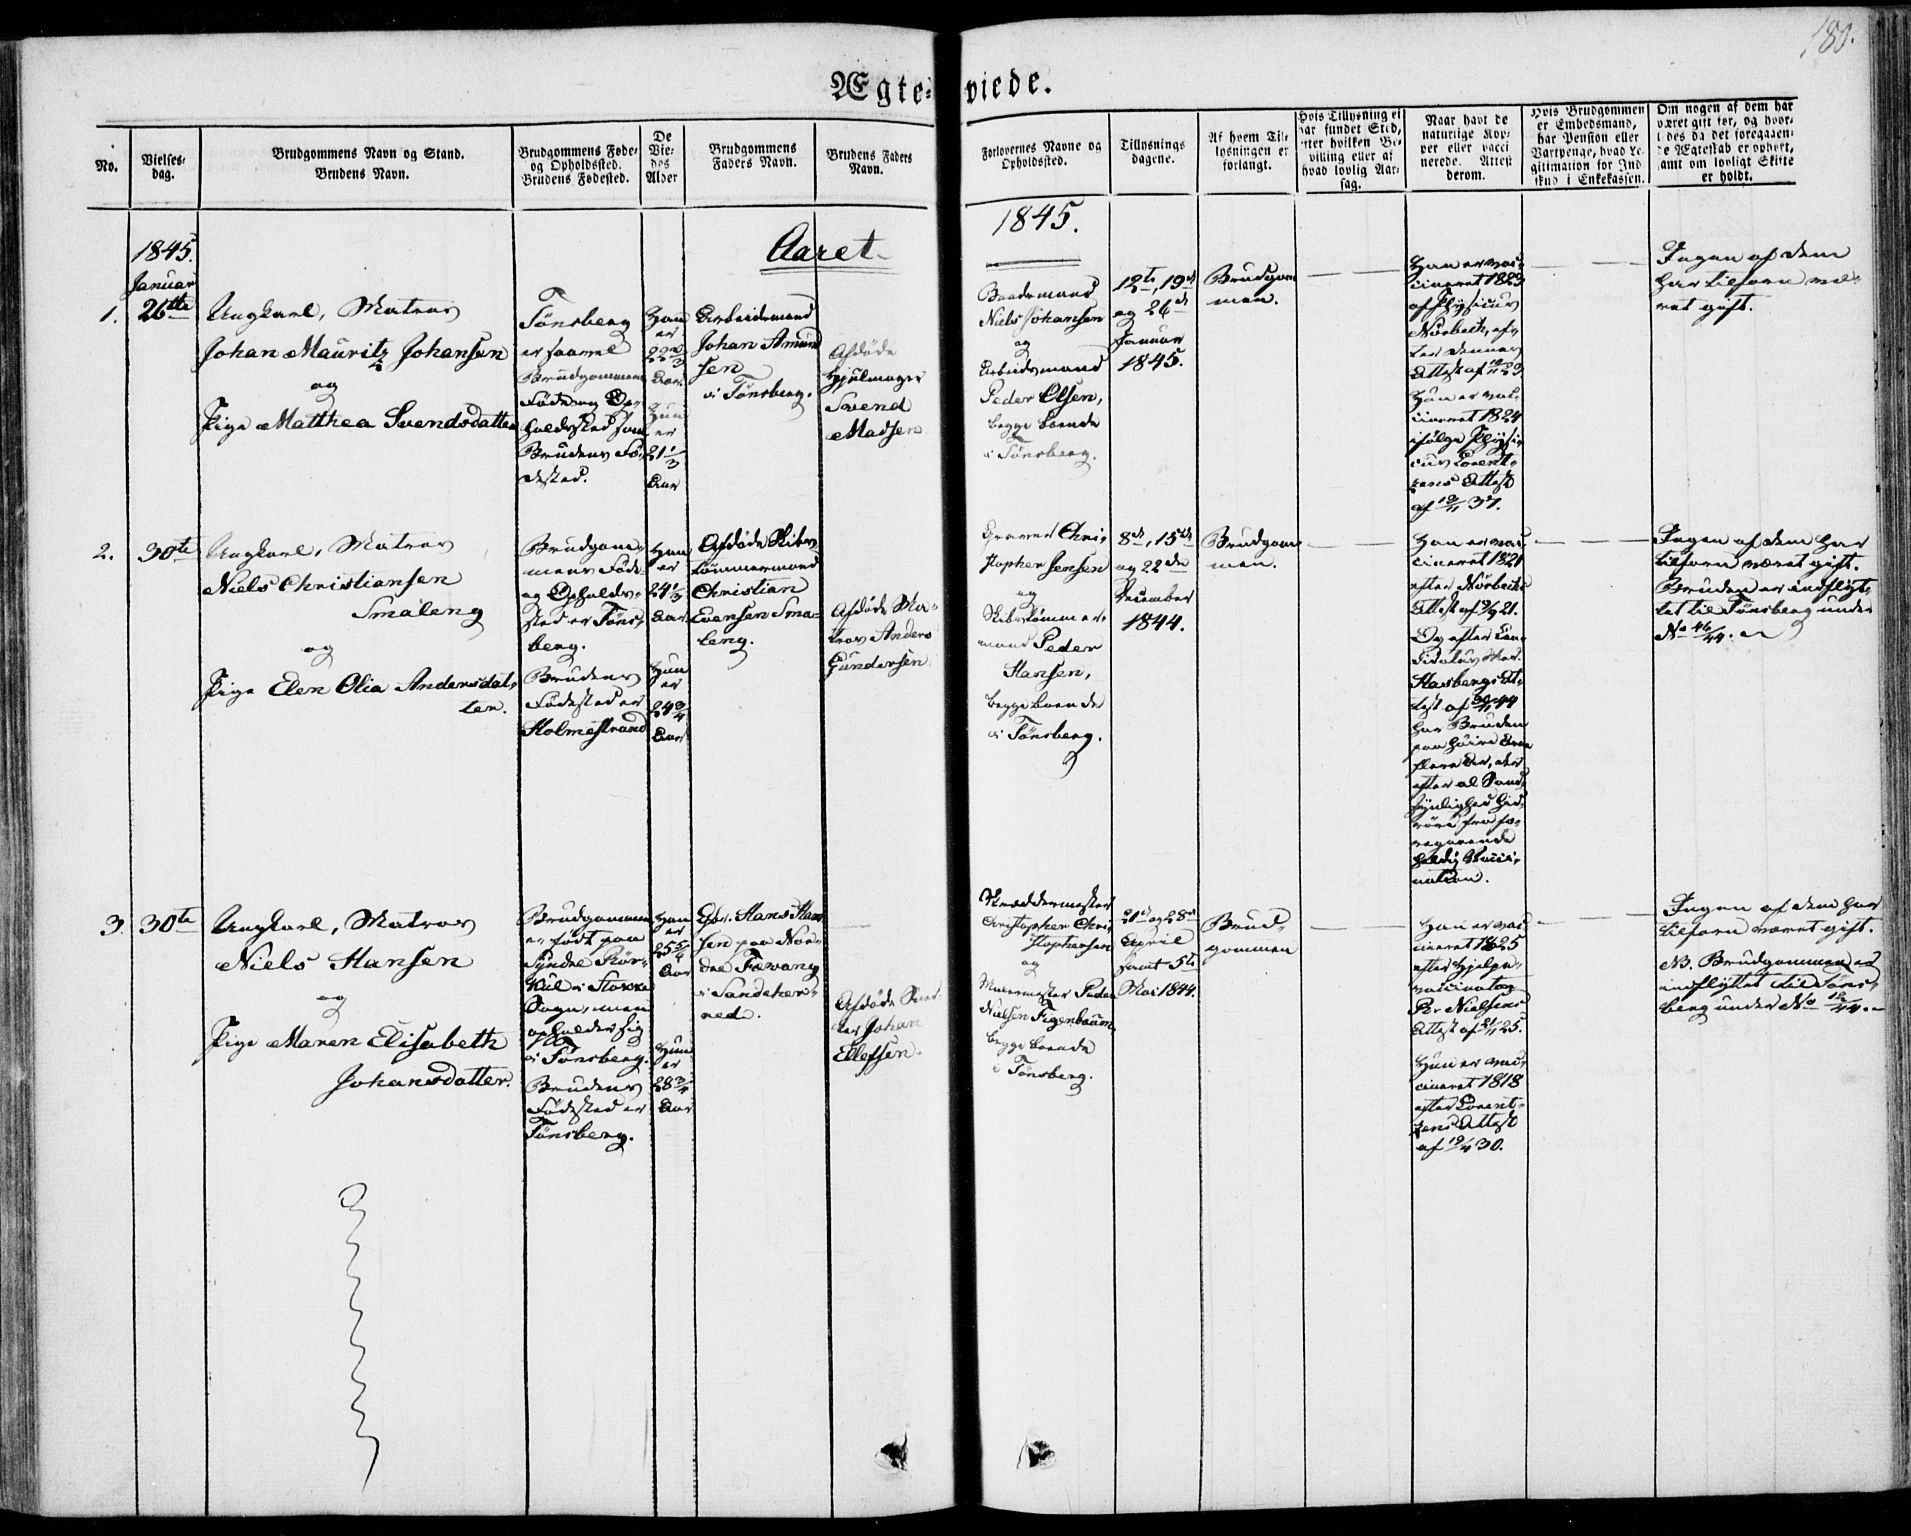 180.
Ægte-viede.
No.
Vielses-
dag.
Brudgommens Navn og Stand.
Brudens Navn.
Brudgommens Føde-
og Opholdssted.
Brudens Fødested.
De
Vie-
des
Alder
Brudgommens
Faders Navn.
Brudens Faders
Navn.
Forlovernes Navne og
Opholdssted.
Tillysnings
dagene.
Af hvem Til-
lysningen er
forlangt.
Hvis Tillysning ei
har fundet Sted,
efter hvilken Be-
villing eller af
hvad lovlig Aar-
sag.
Naar havt de
naturlige Kop-
per eller vacci
nerede. Attest
derom.
Hvis Brudgommen
er Embedsmand,
har Pension eller
Vartpenge, hvad Le-
gitimation for Ind
skud i Enkekassen.
Om nogen af dem har
været gift før, og hvor-
ledes da det foregaaen-
de Ægteskab er ophørt,
samt om lovligt Skifte
er holdt.
Aaret
1845.
1845.
Januar
1.
26de
Ungkarl, Matros
Johan Mauritz Johansen
og
Pige Matthea Svendsdatter
Tönsberg
er saavel
Brudgommens
Føde og Op-
holdssted som
Brudens Fø-
dested.
Han
er
22 2/3
Aar.
Hun
er
21 1/3
Aar
Arbeidsmand
Johan Amund
sen
i Tønsberg.
Afdøde
Hjulmager
Svend
Madsen
Baadsmand
Niels Johansen
og
Arbeidsmand
Peder Olsen,
begge boende
i Tönsberg.
12te, 19de
og 26de
Januar
1845.
Brudgom
men.
Han er vac-
cineret 1823
af Physicus
Nörbech, ef-
ter dennes
Attest af 23.
Hun er vac-
cineret 1824
ifølge Physi-
cus Lorent-
zens Attest
af 37.
Ingen af dem
har tilforn væ-
ret gift.
2.
30te
Ungkarl, Matros
Niels Christiansen
Smaleng
og
Pige Elen Olia Andersdat-
ter.
Brudgom-
mens Føde-
og Opholds-
sted er Töns-
berg.
Brudens
Fødested er
Holmestrand
Han
er
24 1/3
Aar
Hun
er
24 3/4
Aar
Afdøde Skibs-
tømmermand
Christian
Evensen Sma-
leng.
Afdøde Ma-
tros Anders
Gundersen
Graver Chri-
stopher Jensen
og
Skibstömmer-
mand Peder
Hansen,
begge boende
i Tönsberg.
8de, 15de
og 22de
December
1844.
Brudgom
men.
Han er vac-
cineret 1821
efter Nörbechs
Attest af 21.
Og efter Can-
didatus Med.
Attest af 44
har Bruden
paa høire Arm
flere Ar, der
efter al Sand-
synlighed hid-
röre fra fo-
regaaende
heldig Vacci-
nation.
Ingen af dem har
tilforn været gift.
Bruden er indflyt-
tet til Tønsberg under
No 46/44.
3.
30te
Ungkarl, Matros
Niels Hansen
og
Pige Maren Elisabeth
Johansdatter.
Brudgommen
er født paa
Syndre Rör-
kul i Stokke
Sogn, men
opholder sig
i Tönsberg.
Brudens
Fødested er
Tönsberg.
Han
er
25
Aar
Hun
er
28 3/4
Aar
Gbr. Hans Han
sen paa Nor-
dre Fevang
i Sandeher-
red.
Afdøde
Johan
Ellefsen.
Skræddermester
Christopher Chri-
stophersen
og
Malermester Peder
Nielsen Figenbaum,
begge boende
i Tönsberg.
21de og 28de
April
samt 5te
Mai 1844.
Brud-
gommen
Han er vac-
cineret 1825
efter Hjelpe-
vaccinatør
Per Nielsens
Attest af 25.
Hun er vac-
cineret 1818
efter Lorent-
zens Attest
af 19/4 30.
Ingen af dem har
tilforn været gift.
NB. Brudgommen er
indflyttet til Töns-
berg under No 12/44.